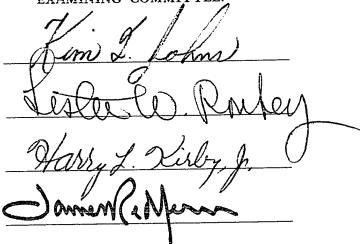 EXAMINING COMMITTEE:
Kim L. Johns
Leslee W. Roubey
Harry L. Kirby, Jr.
James R.